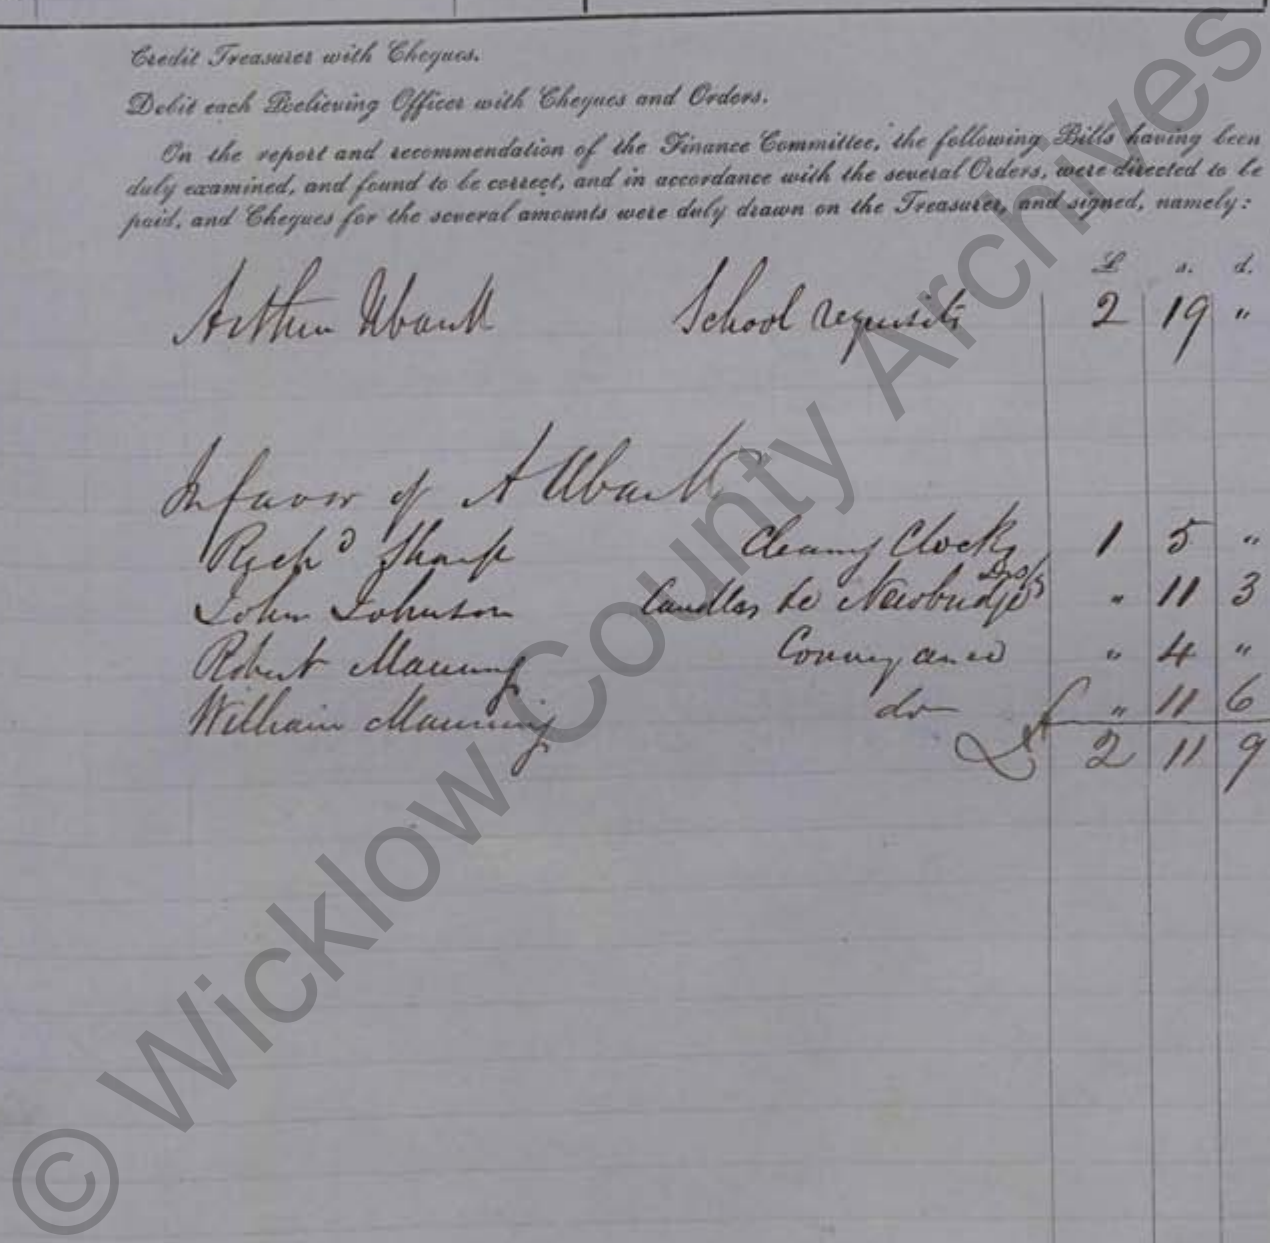 Credit Treasurer with Cheques.
Debit each Relieving Officer with Cheques and Orders.
On the report and recommendation of the Finance Committee, the following Bills having been
duly examined, and found to be correct, and in accordance with the several Orders, were directed to be
paid, and Cheques for the several amounts were duly drawn on the Treasurer, and signed, namely:
£ s. d.
Arthur Ubank School requisits 2 19 "
In favor of A Ubank
Richd Sharp Cleaning Clocks 1 5 "
John Johnson Candles &c Newbridge " 11 3
Robert Manning Conveyance " 4 "
William Manning do " 11 6
£ 2 11 9
© Wicklow County Archives